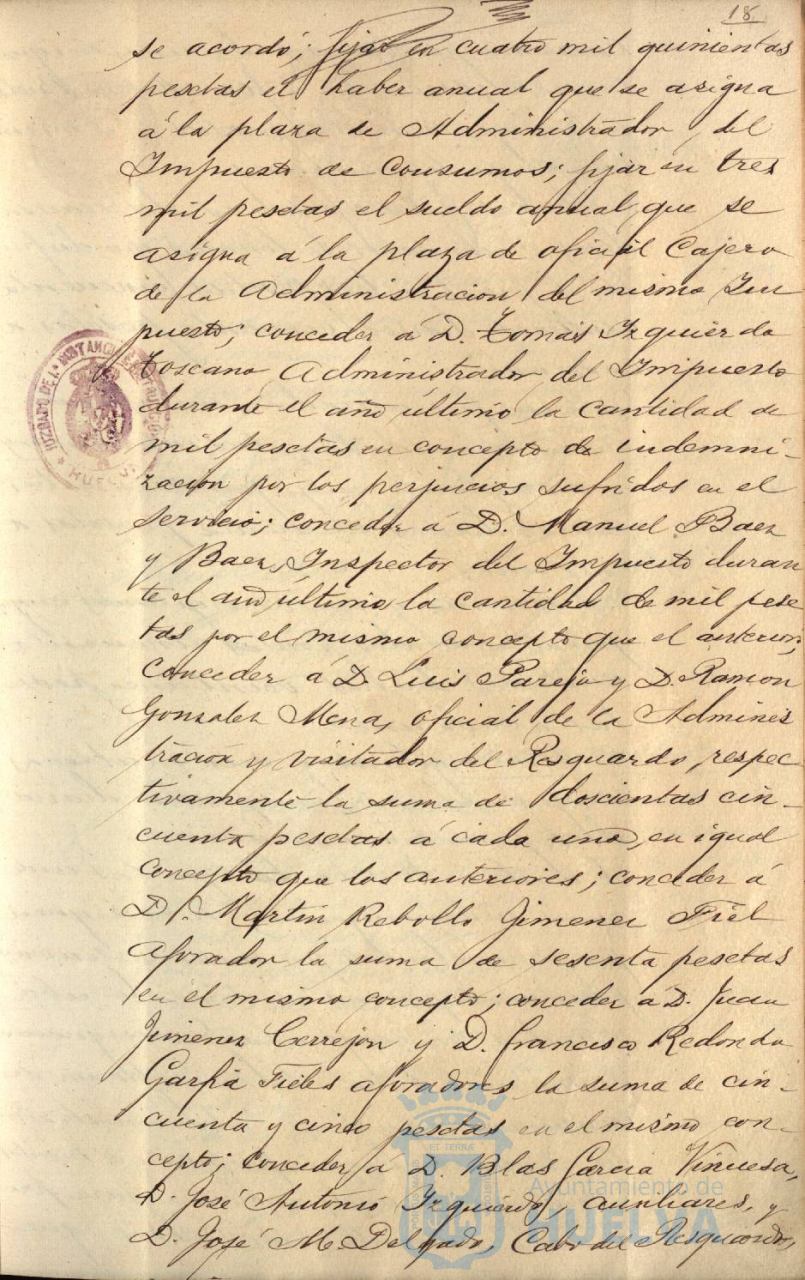 18
se acordó; fijar en cuatro mil quinientas
pesetas el haber anual que se asigna
á la plaza de Administrador, del
Impuesto de Consumos; fijar en tres
mil pesetas el sueldo anual que se
asigna á la plaza de oficial Cajero
de la Administracion del mismo Im
puesto; conceder á D. Tomás Izquierdo
Toscano Administrador del Impuesto
durante el año último la cantidad de
mil pesetas en concepto de indemni-
zacion por los perjuicios sufridos en el
servicio; conceder á D. Manuel Baez
y Baez, Inspector del Impuesto duran
te el año último la cantidad de mil pese
tas por el mismo concepto que el anterior;
conceder á D. Luis Pareja y D. Ramon
Gonzalez Mena, oficial de la Adminis
tracion y visitador del Resguardo, respec-
tivamente la suma de doscientas cin-
cuenta pesetas á cada uno, en igual
concepto que los anteriores; conceder á
D. Martin Rebollo Jimenez Fiel
aforador la suma de sesenta pesetas
en el mismo concepto; conceder á D. Juan
Jimenez Cerrejon y D. Francisco Redondo
Garfia Fieles aforadores la suma de cin-
cuenta y cinco pesetas en el mismo con-
cepto; conceder á D. Blas Garcia Vinuesa,
D. José Antonio Izquierdo, auxiliares, y
D. José M. Delgado, Cabo del Resguardo,
JUZGADO DE 1ª INSTANCIA
HUELVA
Ayuntamiento de
HUELVA